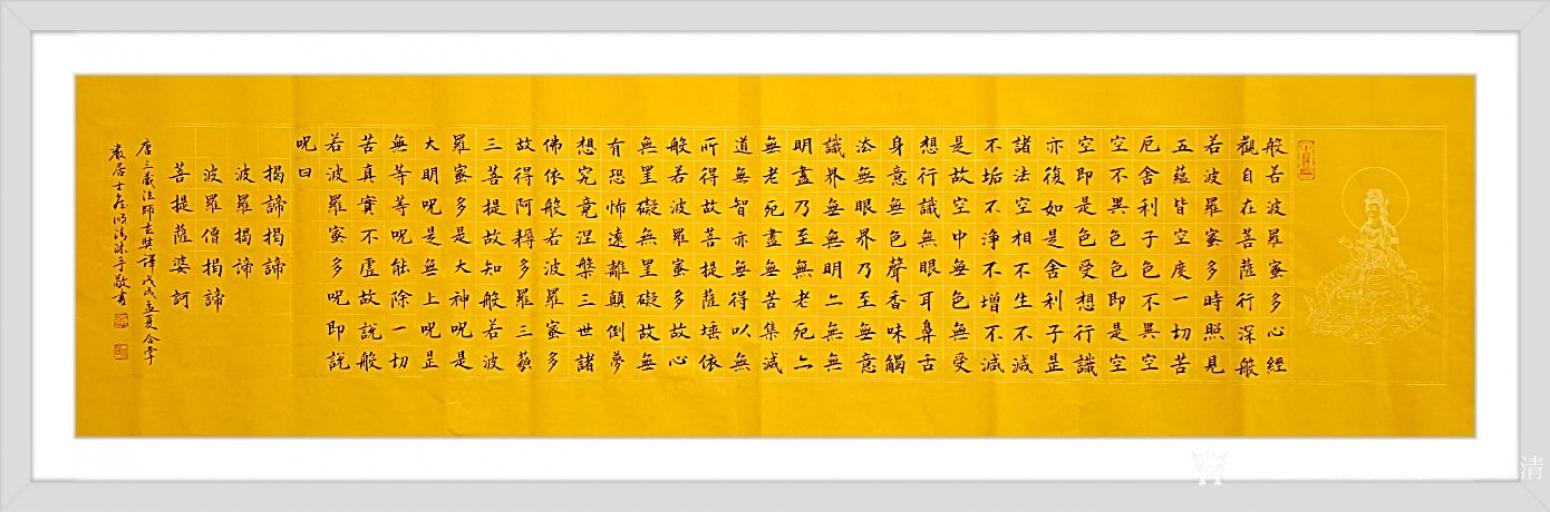 般若波羅蜜多心經
觀自在菩薩行深般
若波羅蜜多時照見
五蘊皆空度一切苦
厄舍利子色不異空
空不異色色即是空
空即是色受想行識
亦復如是舍利子是
諸法空相不生不滅
不垢不淨不增不減
是故空中無色無受
想行識無眼耳鼻舌
身意無色聲香味觸
法無眼界乃至無意
識界無無明亦無無
明盡乃至無老死亦
無老死盡無苦集滅
道無智亦無得以無
所得故菩提薩埵依
般若波羅蜜多故心
無罣礙無罣礙故無
有恐怖遠離顛倒夢
想究竟涅槃三世諸
佛依般若波羅蜜多
故得阿耨多羅三藐
三菩提故知般若波
羅蜜多是大神呪是
大明呪是無上呪是
無等等呪能除一切
苦真實不虛故說般
若波羅蜜多呪即說
呪曰
揭諦揭諦
波羅揭諦
波羅僧揭諦
菩提薩婆訶
唐三藏法師玄奘譯戊戌孟夏合掌
居士清沐手敬書
清